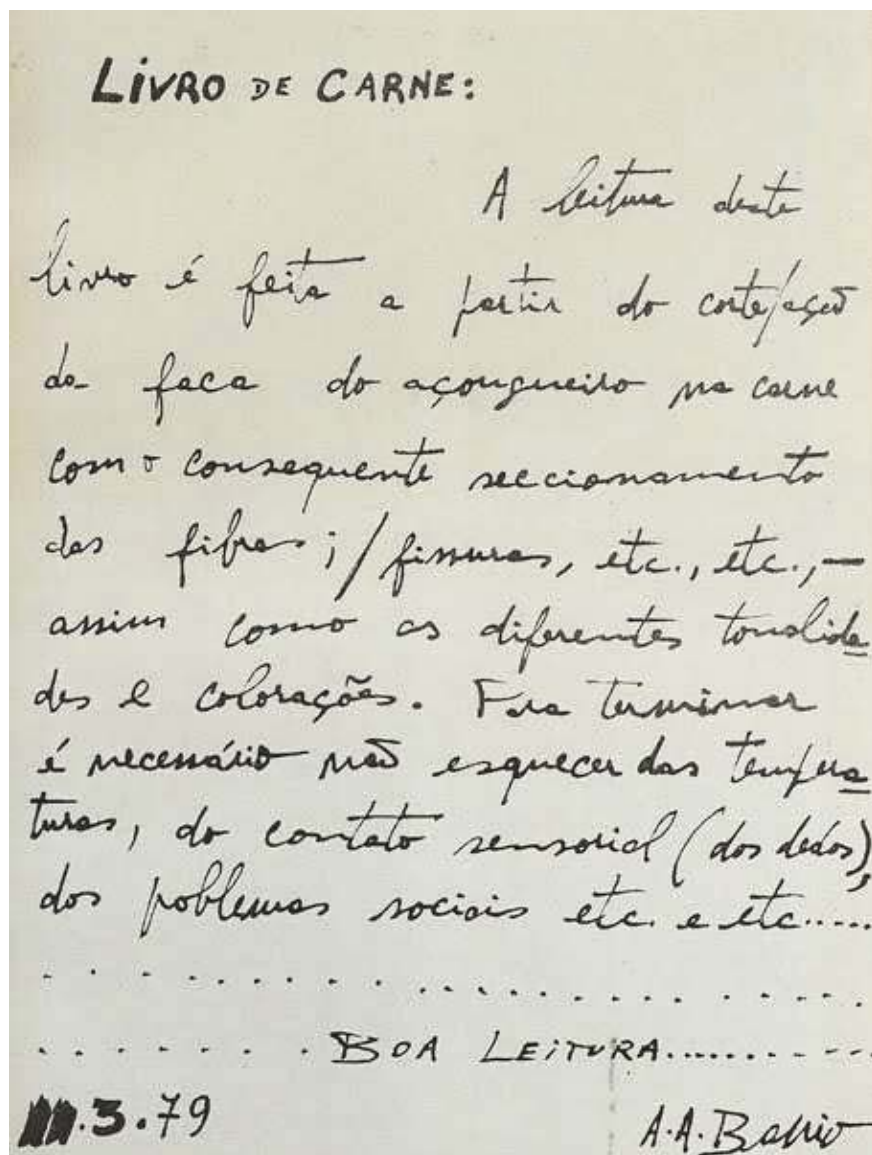 LIVRO DE CARNE:
A leitura deste
livro é feita a partir do corte/ação
da faca do açougueiro na carne
com o consequente seccionamento
das fibras; / fissuras, etc., etc., —
assim como as diferentes tonalida
des e colorações. Para terminar
é necessário não esquecer das tempera
turas, do contato sensorial (dos dedos),
dos problemas sociais etc. e etc.....
. . . . . . . . . . . . . . . . . . . .
. . . . . . . BOA LEITURA..........
.3.79
A.A. Barrio